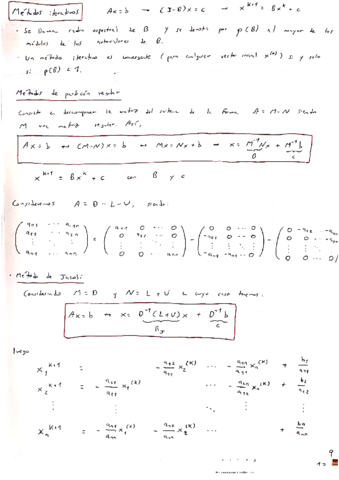 Métodos iterativos   Ax = b → (I-B)x = c → x^{k+1} = Bx^k + c
· Se llama radio espectral de B y se denota por ρ(B) al mayor de los
módulos de los autovalores de B.
· Un método iterativo es convergente (para cualquier vector inicial x^{(0)}) si y solo
si ρ(B) < 1.
Métodos de partición regular
Consiste en descomponer la matriz del sistema de la forma A = M-N siendo
M una matriz regular. Así,
Ax = b ↔ (M-N)x = b ↔ Mx = Nx + b → x = M^{-1}Nx + M^{-1}b
B   c
x^{k+1} = Bx^k + c   con   B y c
Consideramos   A = D - L - U, siendo:
· Método de Jacobi
Considerando M = D y N = L + U en cuyo caso tenemos:
Ax = b ↔ x = D^{-1}(L+U)x + D^{-1}b
B_J   c
luego
x_1^{k+1} = - a_{12}/a_{11} x_2^{(k)} ... - a_{1n}/a_{11} x_n^{(k)} + b_1/a_{11}
x_2^{k+1} = - a_{21}/a_{22} x_1^{(k)} ... - a_{2n}/a_{22} x_n^{(k)} + b_2/a_{22}
x_n^{k+1} = - a_{n1}/a_{nn} x_1^{(k)} - a_{n2}/a_{nn} x_2^{(k)} ... + b_n/a_{nn}
9